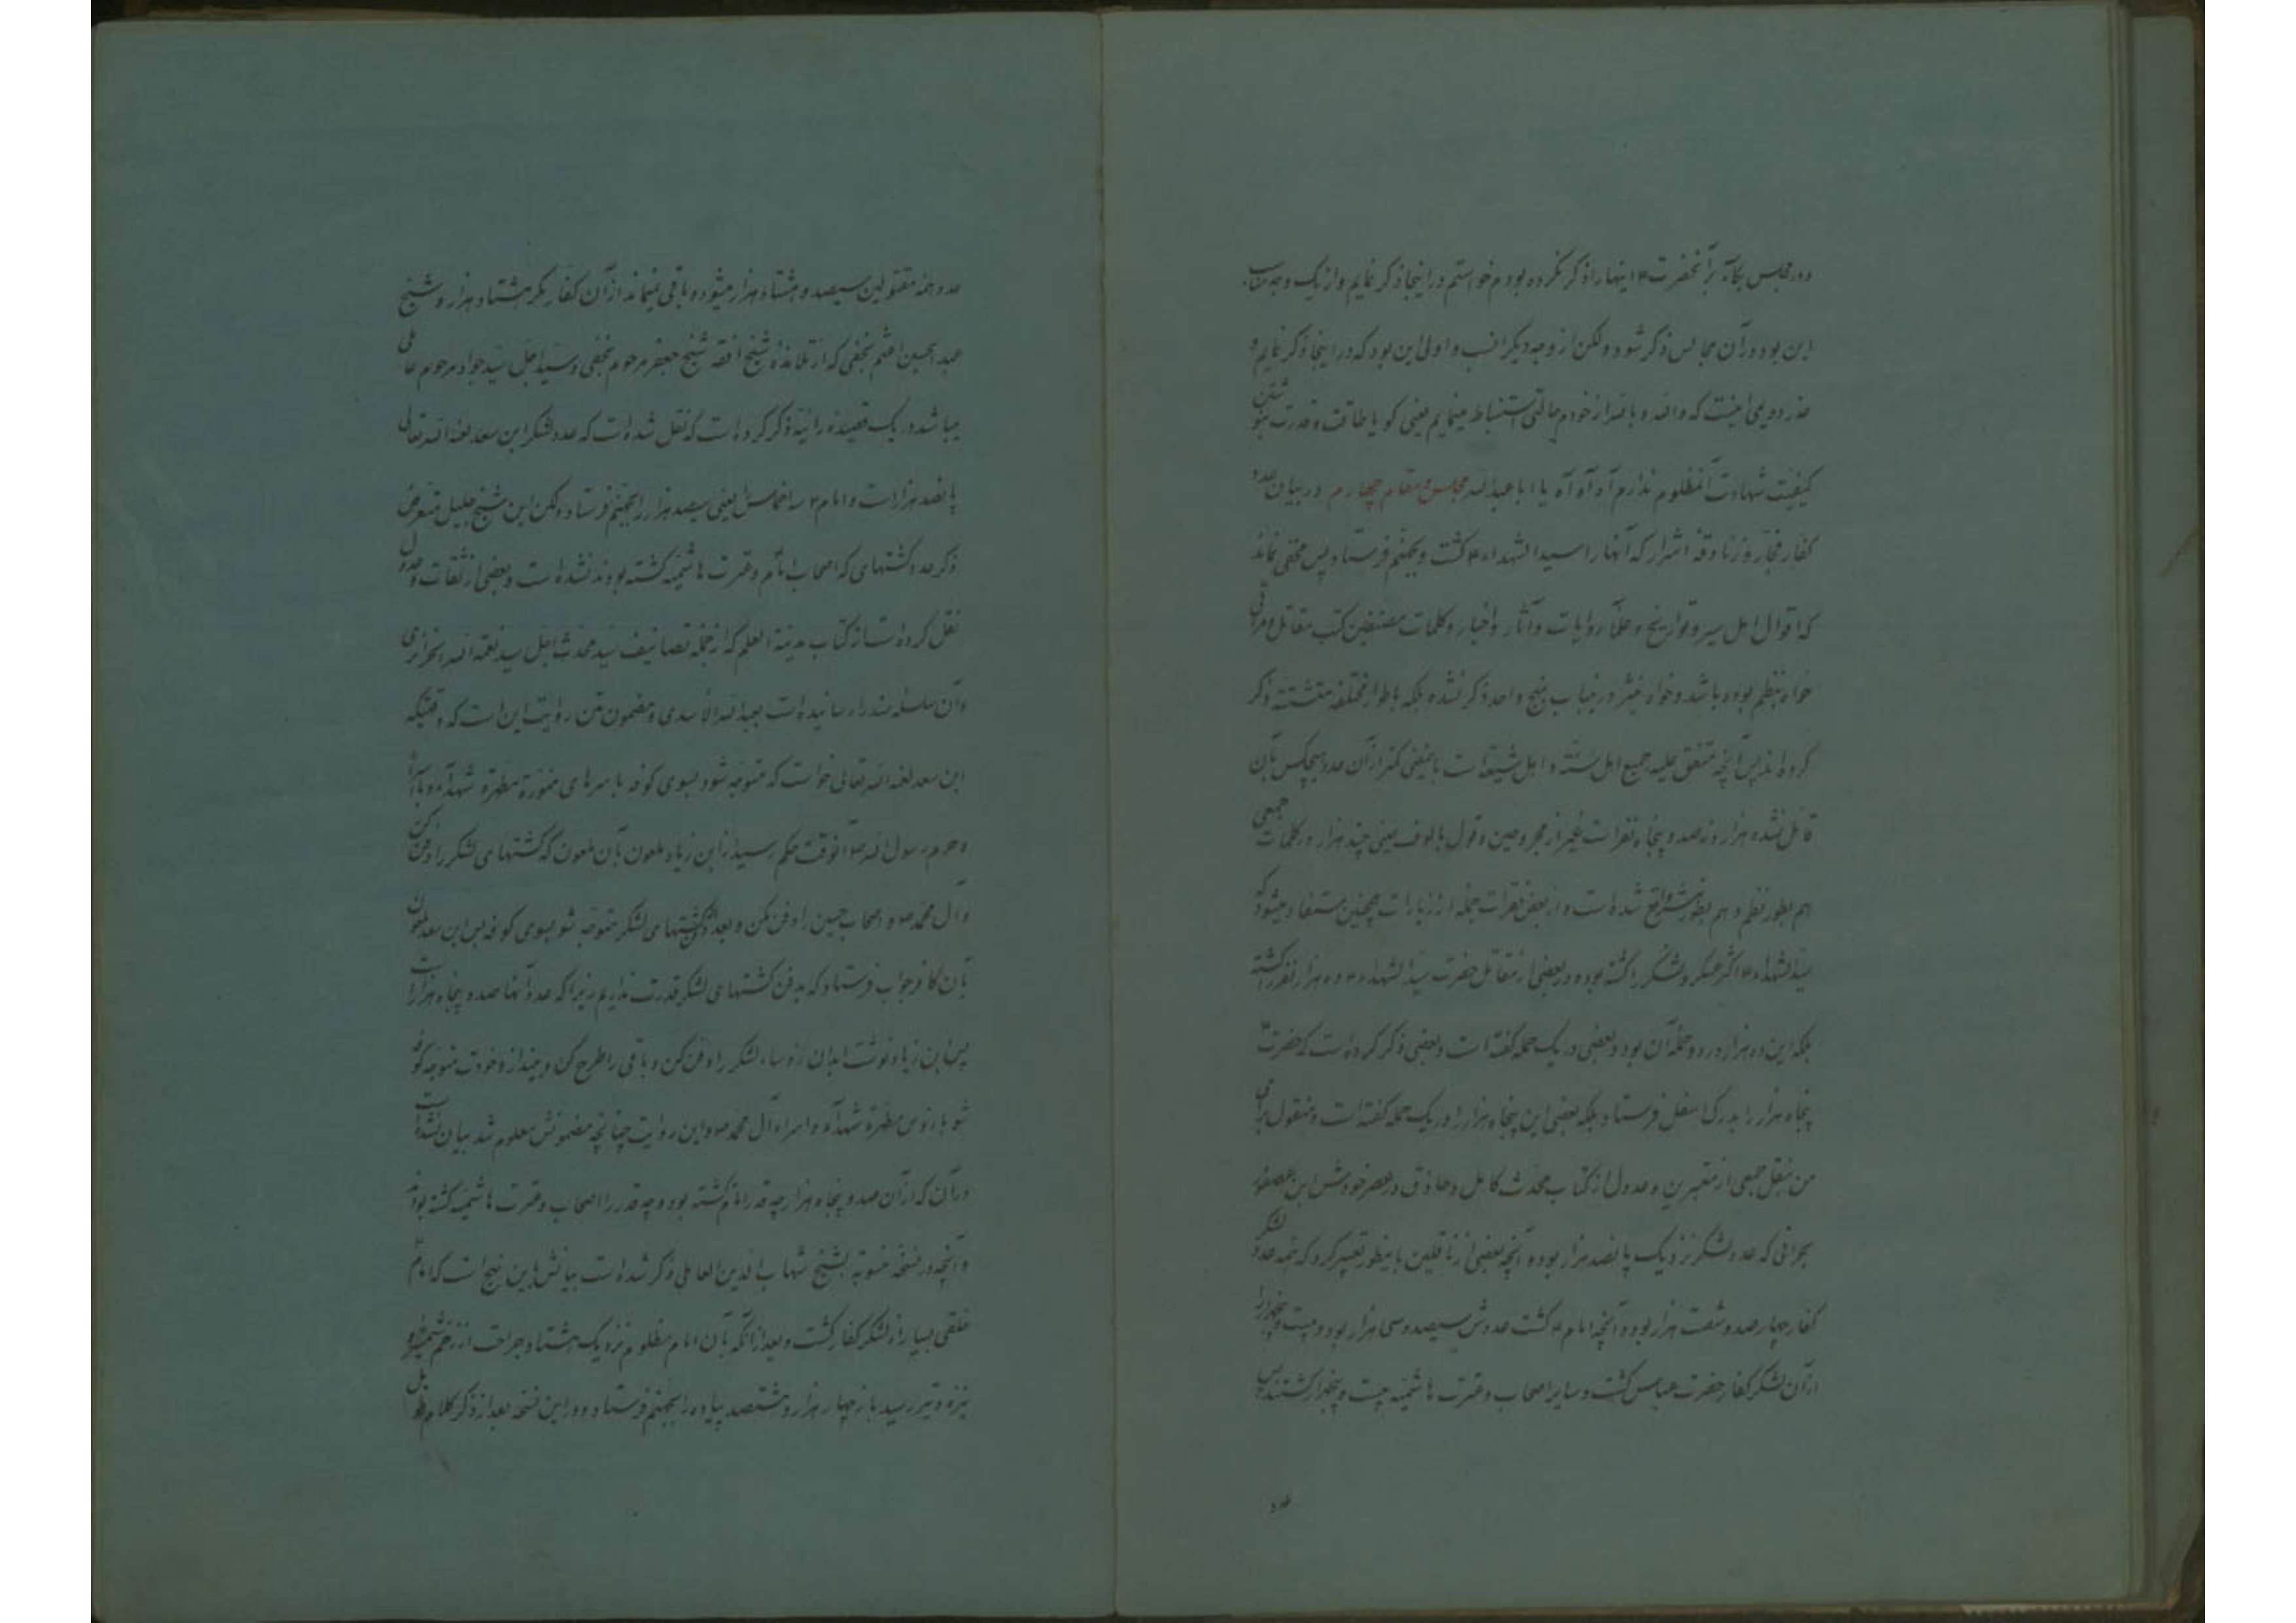 و در مجلس بکاء بر آنحضرت ۴ اینها را ذکر نکرده بودم خواستم در اینجا ذکر نمایم و از یک وجه مناسب
این بود در آن مجالس ذکر شود ولکن از وجه دیگر انسب و اولی این بود که در اینجا ذکر نمایم و
عذر دویمی اینست که والله و بالله از خودم حالتی استنباط مینمایم یعنی گویا طاقت و قدرت نوشتن
کیفیت شهادت آنمظلوم ندارم آه آه آه یا ابا عبدالله مجلس و مقام چهارم در بیان عدد
کفار فجار و زنادقه اشرار که آنها را سید الشهداء ۴ کشت و بجهنم فرستاد پس مخفی نماند
که اقوال اهل سیر و تواریخ و حمله روایات و آثار و اخبار و کلمات مصنفین کتب مقاتل و مراثی
خواه بنظم بوده باشد و خواه بنثر در نیباب بنهج واحد ذکر نشده بلکه باطوار مختلفه متشتته ذکر
کرده اند پس آنچه متفق علیه جمیع اهل سنته و اهل شیعه است بانیمعنی کمتر از آن عدد هیچکس بآن
قائل نشده هزار و نهصد و پنجاه نفر است غیر از مجروحین و قول بالوف یعنی چند هزار در کلمات جمعی
هم بطور نظم و هم بطور نثر واقع شده است و از بعض فقرات جمله از زیارات همچنین مستفاد میشود که
سید الشهداء ۴ اکثر عسکر و لشکر را کشته بوده و در بعضی از مقاتل حضرت سید الشهداء ۴ ده هزار نفر را کشته
بلکه این ده هزار در دو حمله آن بود و بعضی در یک حمله گفته است و بعضی ذکر کرده است که حضرت ۴
پنجاه هزار را بدرک اسفل فرستاد بلکه بعضی این پنجاه هزار را در یک حمله گفته است و منقول برای
من بنقل جمعی از معتبرین و عدول از کتاب محدث کامل و حاذق در عصر خودش ابن عصفور
بحرانی که عدد لشکر نزدیک پانصد هزار بود و آنچه بعضی از ناقلین باینطور تعبیر کرد که تتمه عدد لشکر
کفار چهار صد و شصت هزار بود و آنچه امام ۴ کشت عددش سیصد و سی هزار بود و بیست و پنجهزار
از آن لشکر کفار حضرت عباس کشت و سایر اصحاب و عترت هاشمیه بیست و پنجهزار کشتند پس
عدد
عدد همه مقتولین سیصد و هشتاد هزار میشود و باقی نمیماند از آن کفار مگر هشتاد هزار و شیخ
عبد الحسین اعثم نجفی که از تلامذه شیخ افقه شیخ جعفر مرحوم نجفی و سید اجل سید جواد مرحوم عاملی
میباشد در یک قصیده رائیه ذکر کرده است که نقل شده است که عدد لشکر ابن سعد لعنه الله تعالی
پانصد هزار است و امام ۴ سه اخماس یعنی سیصد هزار را بجهنم فرستاد ولکن این شیخ جلیل متعرض
ذکر عدد کشتهای که اصحاب امام و عترت هاشمیه کشته بودند نشده است و بعضی از ثقات و عدول
نقل کرده است از کتاب مدینة العلم که از جمله تصانیف سید محدث اجل سید نعمة الله الجزایری
و آن سلسله سند را رسانیده است بعبد الله الأسدی و مضمون متن روایت این است که وقتیکه
ابن سعد لعنه الله تعالی خواست که متوجه شود بسوی کوفه با سرهای منوره مطهره شهداء و با اسراء
و حرم رسول الله ص آنوقت حکم رسید از ابن زیاد ملعون بآن ملعون که کشتهای لشکر را دفن کن
و آل محمد ص و اصحاب حسین را دفن مکن و بعد از دفن کشتهای لشکر متوجه شو بسوی کوفه پس ابن سعد ملعون
بآن کافر جواب فرستاد که بدفن کشتهای لشکر قدرت نداریم زیرا که عدد آنها صد و پنجاه هزار است
پس ابن زیاد نوشت ابدان رؤساء لشکر را دفن کن و باقی را طرح کن و بینداز و خودت متوجه کوفه
شو با رؤس مطهره شهداء و اسراء آل محمد ص و این روایت چنانچه مضمونش معلوم شد بیان نشده است
در آن که از آن صد و پنجاه هزار چه قدر امام کشته بود و چه قدر را اصحاب و عترت هاشمیه کشته بودند
و آنچه در نسخه منسوبه بشیخ شهاب الدین العاملی ذکر شده است بیانش باین نهج است که امام ۴
خلقی بسیار از لشکر کفار کشت و بعد از آنکه بآن امام مظلوم نزدیک هشتاد جراحت از زخم شمشیر و
نیزه و تیر رسید باز چهار هزار و هشتصد پیاده را بجهنم فرستاد و در این نسخه بعد از ذکر کلام